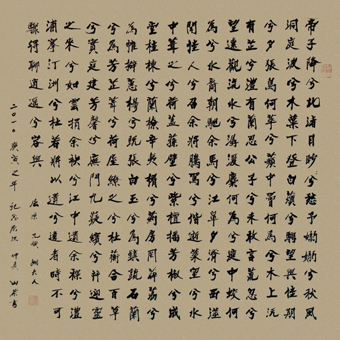 帝子降兮北渚目眇兮愁予嫋嫋兮秋風
洞庭波兮木葉下登白薠兮騁望與佳期
兮夕張鳥何萃兮蘋中罾何為兮木上沅
有芷兮澧有蘭思公子兮未敢言荒忽兮
遠望觀流水兮潺湲麋何為兮庭中蛟何
為兮水裔朝馳余馬兮江皋夕濟兮西澨
聞佳人兮召余將騰駕兮偕逝築室兮水
中葺之兮荷蓋蓀壁兮紫壇播芳椒兮成
堂桂棟兮蘭橑辛夷楣兮葯房罔薜荔兮
為帷擗蕙櫋兮既張白玉兮為鎮疏石蘭
兮為芳芷葺兮荷屋繚之兮杜衡合百草
兮實庭建芳馨兮廡門九嶷繽兮並迎靈
之來兮如雲捐余袂兮江中遺余褋兮澧
浦搴汀洲兮杜若將以遺兮遠者時不可
驟得聊逍遙兮容與
屈原 九歌 湘夫人
二〇一〇 庚寅之年